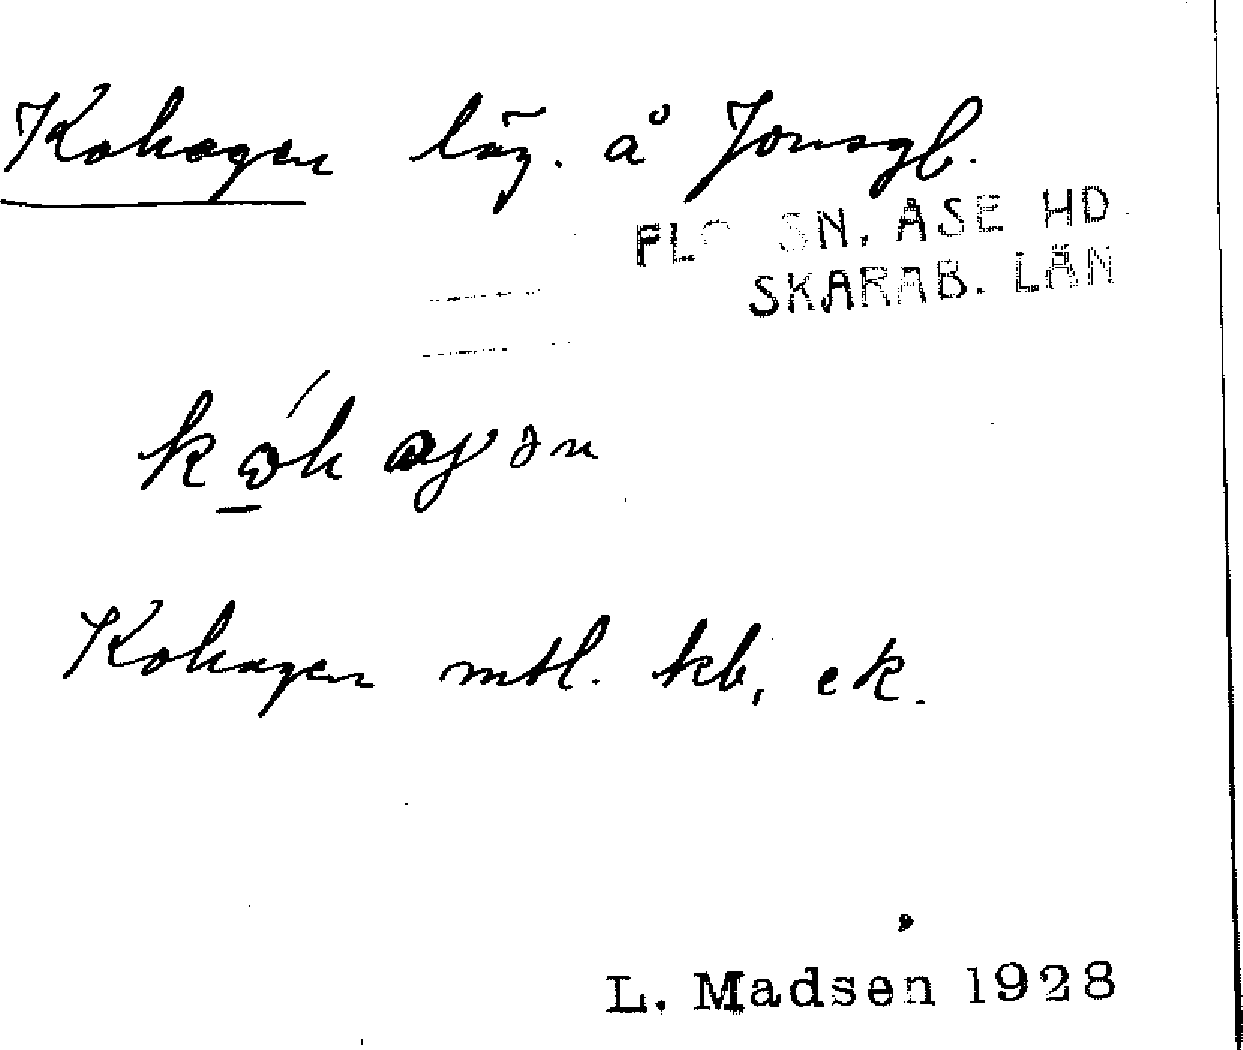 Kohagen läg. å Jonsgb.
FLO SN. ÅSE HD
SKARAB. LÄN
Kohagen mtl. kb, ek.
L. Madsen 1928